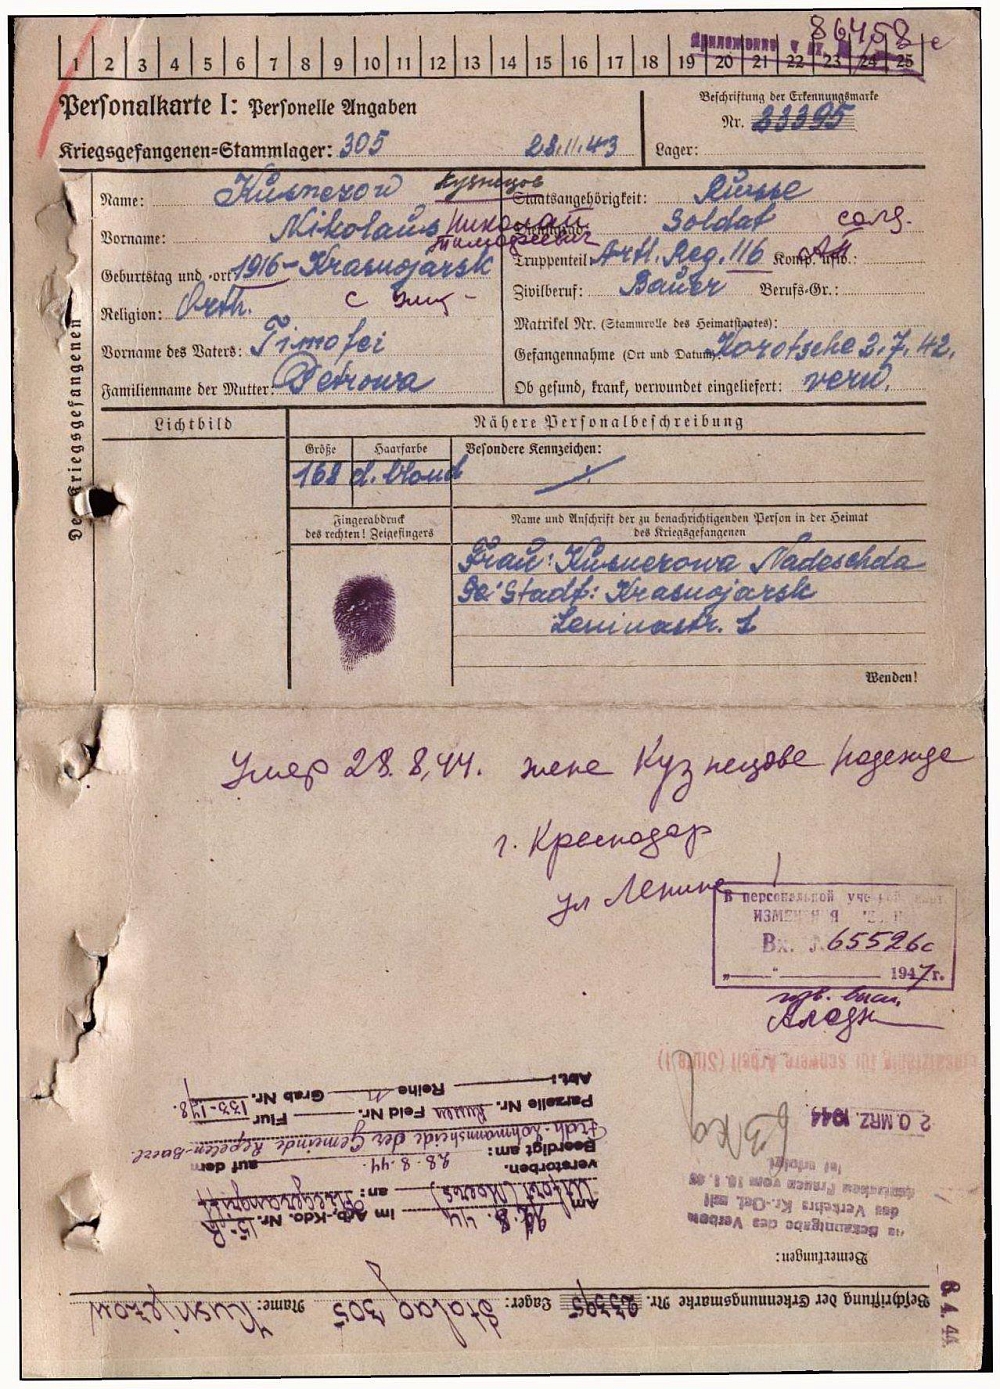 86458 с
Приложение
1 2 3 4 5 6 7 8 9 10 11 12 13 14 15 16 17 18 19 20 21 22 23 24 25
Personalkarte I: Personelle Angaben
Beschriftung der Erkennungsmarke
Nr. 23395
Kriegsgefangenen-Stammlager: 305 28.11.43
Lager:
Des Kriegsgefangenen
Name: Kusnezow Кузнецов
Staatsangehörigkeit: Russe
Vorname: Nikolaus Николай Тимофеевич
Dienstgrad: Soldat солд.
Geburtstag und -ort: 1916 - Krasnojarsk
Truppenteil: Artl. Reg. 116 Komp. usw.:
Religion: Orth.
Zivilberuf: Bauer Berufs-Gr.:
Matrikel Nr. (Stammrolle des Heimatstaates):
Vorname des Vaters: Timofei
Gefangennahme (Ort und Datum): Korotsche 2.7.42.
Familienname der Mutter: Petrowa
Ob gesund, krank, verwundet eingeliefert: verw.
Lichtbild
Nähere Personalbeschreibung
Größe Haarfarbe Besondere Kennzeichen:
168 d. blond
Fingerabdruck
des rechten! Zeigefingers
Name und Anschrift der zu benachrichtigenden Person in der Heimat
des Kriegsgefangenen
Frau: Kusnezowa Nadeschda
Stadt: Krasnojarsk
Leninastr. 1
Wenden!
Умер 28.8.44. жена Кузнецова Надежда
г. Краснодар
ул Ленина 1
В персональной учетной карт
ИЗМЕНЕНИЯ
Вх. № 65526с
„ “ 1947 г.
Beschriftung der Erkennungsmarke Nr. 23395 Lager: Stalag 305 Name: Kusnjezow
8. 4. 44
Bemerkungen:
Bekanntgabe des Verbots
des Verkehrs Kr.-Gef. mit
deutschen Frauen vom
ist erfolgt
20. MRZ. 1944
63 kg
Einsatzfähig für schwere Arbeit (Stufe 1)
Am 28.8.44 im Arb.-Kdo. Nr.
Utfort (Moers) an: Fliegerangriff
verstorben.
Beerdigt am: 28.8.44. auf dem
Lohmannsheide der Gemeinde Repelen-Baerl
Parzelle Nr. Russen Feld Nr. Flur
Abt.: Reihe Grab Nr. 133-148.